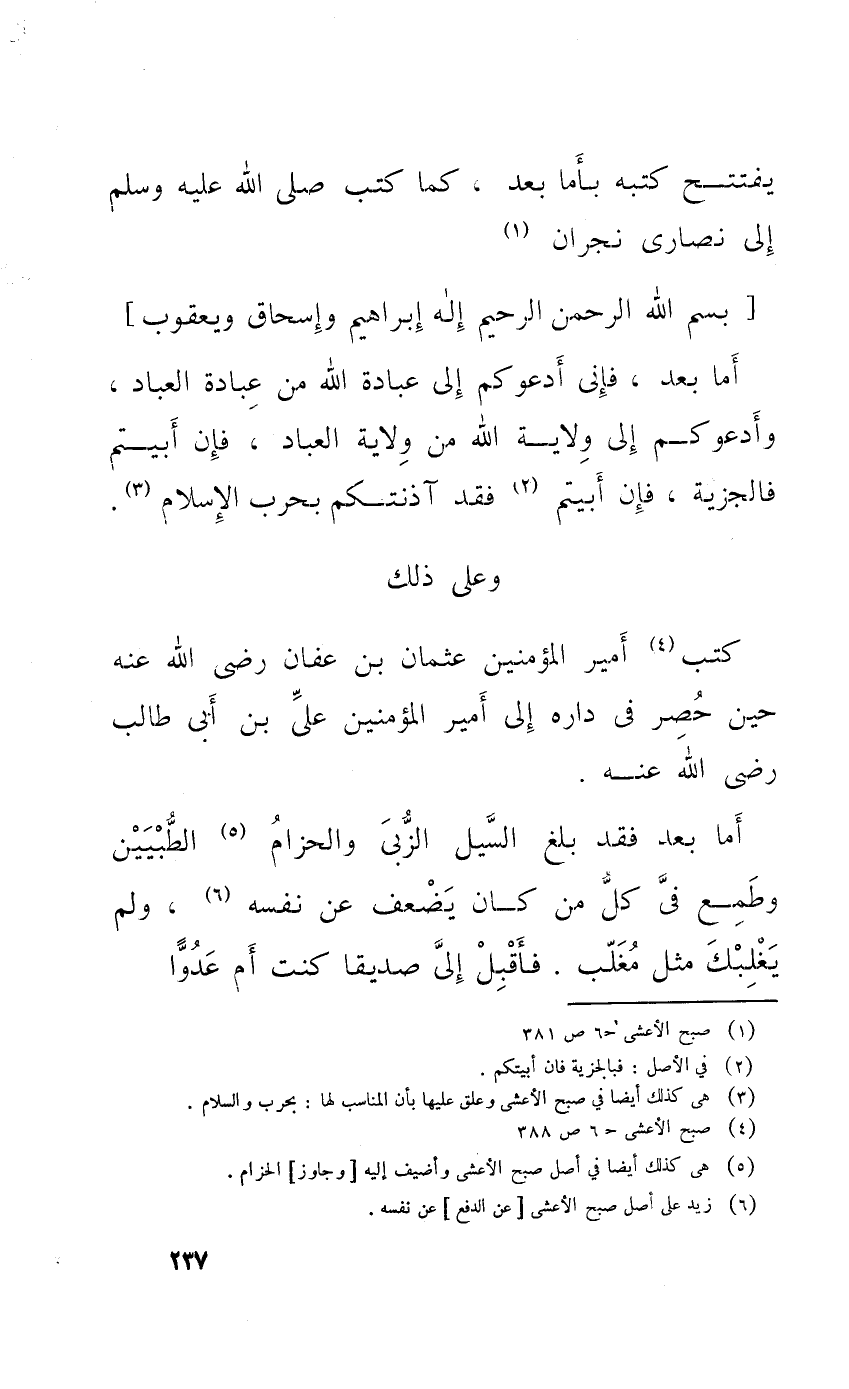 يفتتـــح كتبه بأَما بعد ، كما كتب صلى الله عليه وسلم
إلى نصارى نجران (١)
[ بسم الله الرحمن الرحيم إلٰه إبراهيم وإسحاق ويعقوب ]
أَما بعد ، فإنى أَدعوكم إلى عبادة الله من عِبادة العباد ،
وأَدعوكــم إلى وِلايــة الله من وِلاية العباد ، فإن أَبيــتم
فالجزية ، فإن أَبيتم (٢) فقد آذنتــكم بحرب الإسلام (٣) .
وعلى ذلك
كتب (٤) أَمير المؤمنين عثمان بن عفان رضى الله عنه
حين حُصِر فى داره إلى أَمير المؤمنين علىٍّ بن أَبى طالب
رضى الله عنــه .
أَما بعد فقد بلغ السَّيل الزُّبىَ والحزامُ (٥) الطُّبْيَيْن
وطَمِــع فىَّ كلُّ من كــان يَضْعف عن نفسه (٦) ، ولم
يَغْلِبْكَ مثل مُغَلَّب . فأَقْبِلْ إلىَّ صديقا كنت أَم عَدُوًّا
(١) صبح الأعشى حـ٦ ص ٣٨١
(٢) في الأصل : فبالجزية فان أبيتكم .
(٣) هى كذلك أيضا في صبح الأعشى وعلق عليها بأن المناسب لها : بحرب والسلام .
(٤) صبح الأعشى حـ ٦ ص ٣٨٨
(٥) هى كذلك أيضا في أصل صبح الأعشى وأضيف إليه [ وجاوز ] الحزام .
(٦) زيد على أصل صبح الأعشى [ عن الدفع ] عن نفسه .
٢٣٧